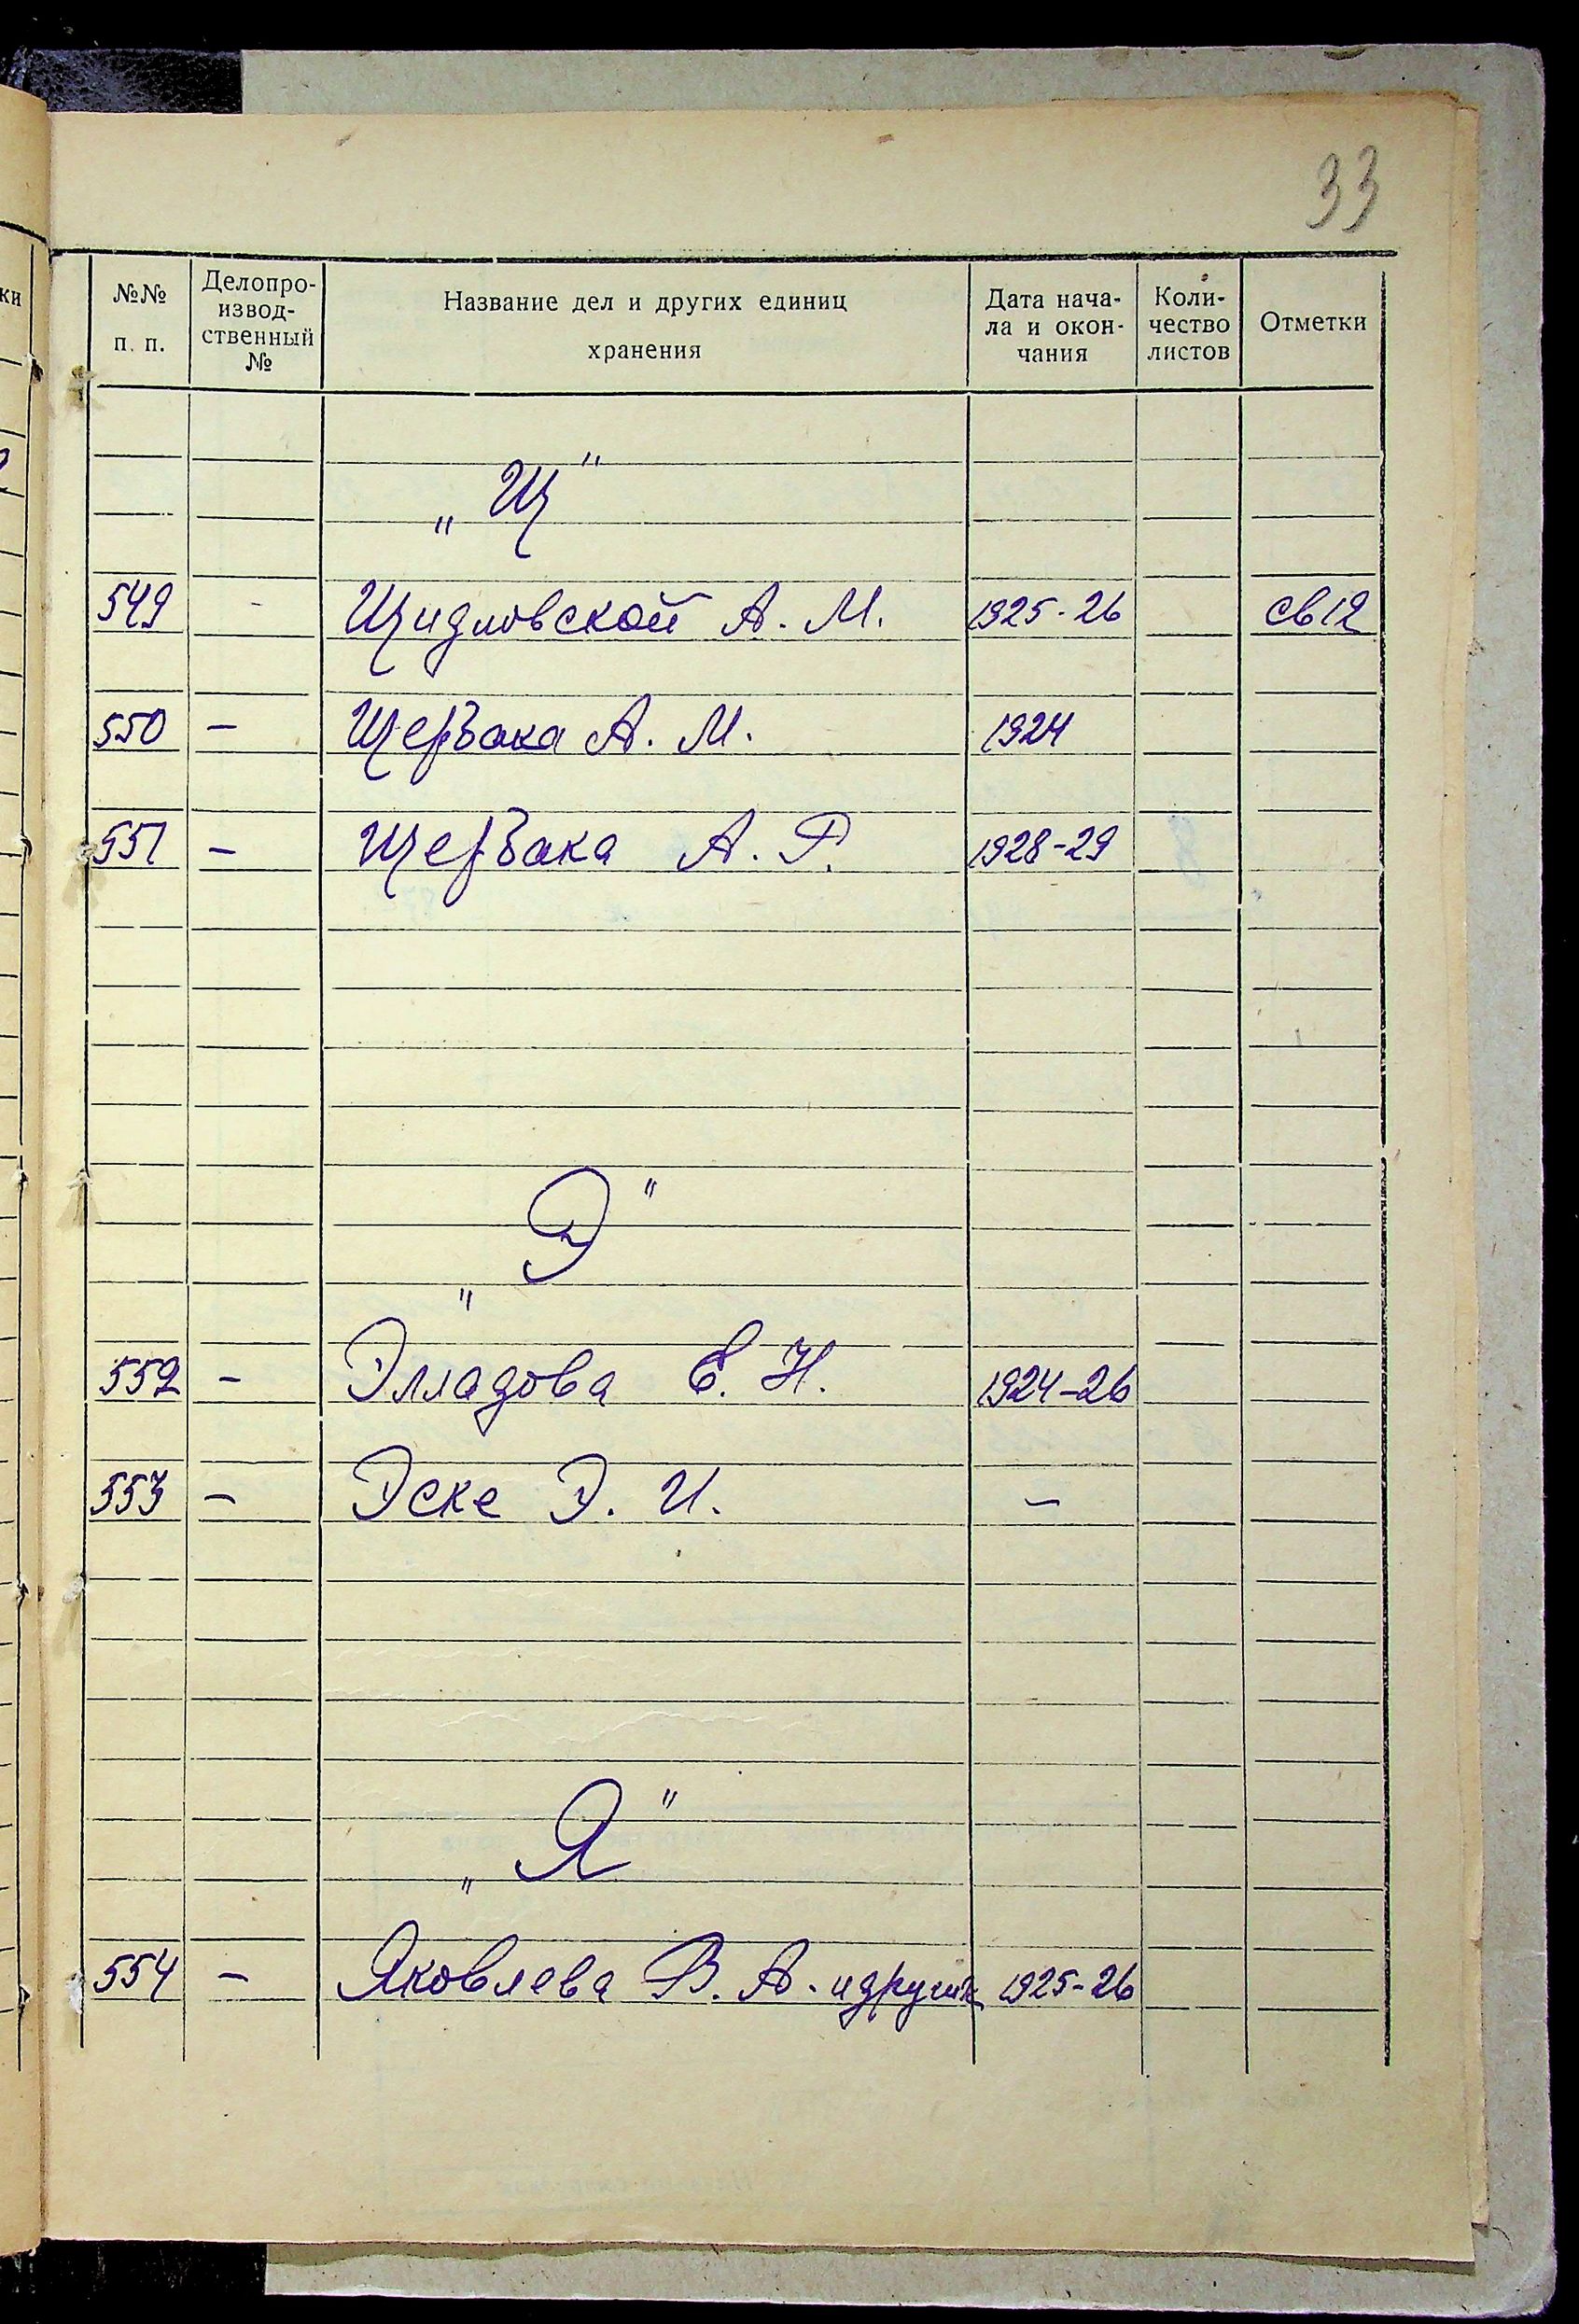 33
№№ п. п.
Делопро-
извод-
ственный
№
Название дел и других единиц
хранения
Дата нача-
ла и окон-
чания
Коли-
чество
листов
Отметки
„Щ"
549 - Щидловской А. М. 1925-26 св12
550 - Щербака А. М. 1924
551 - Щербака А. Г. 1928-29
„Э"
552 - Элладова Е. Н. 1924-26
553 - Эске Э. И. -
„Я"
554 - Яковлева В. А. и других 1925-26